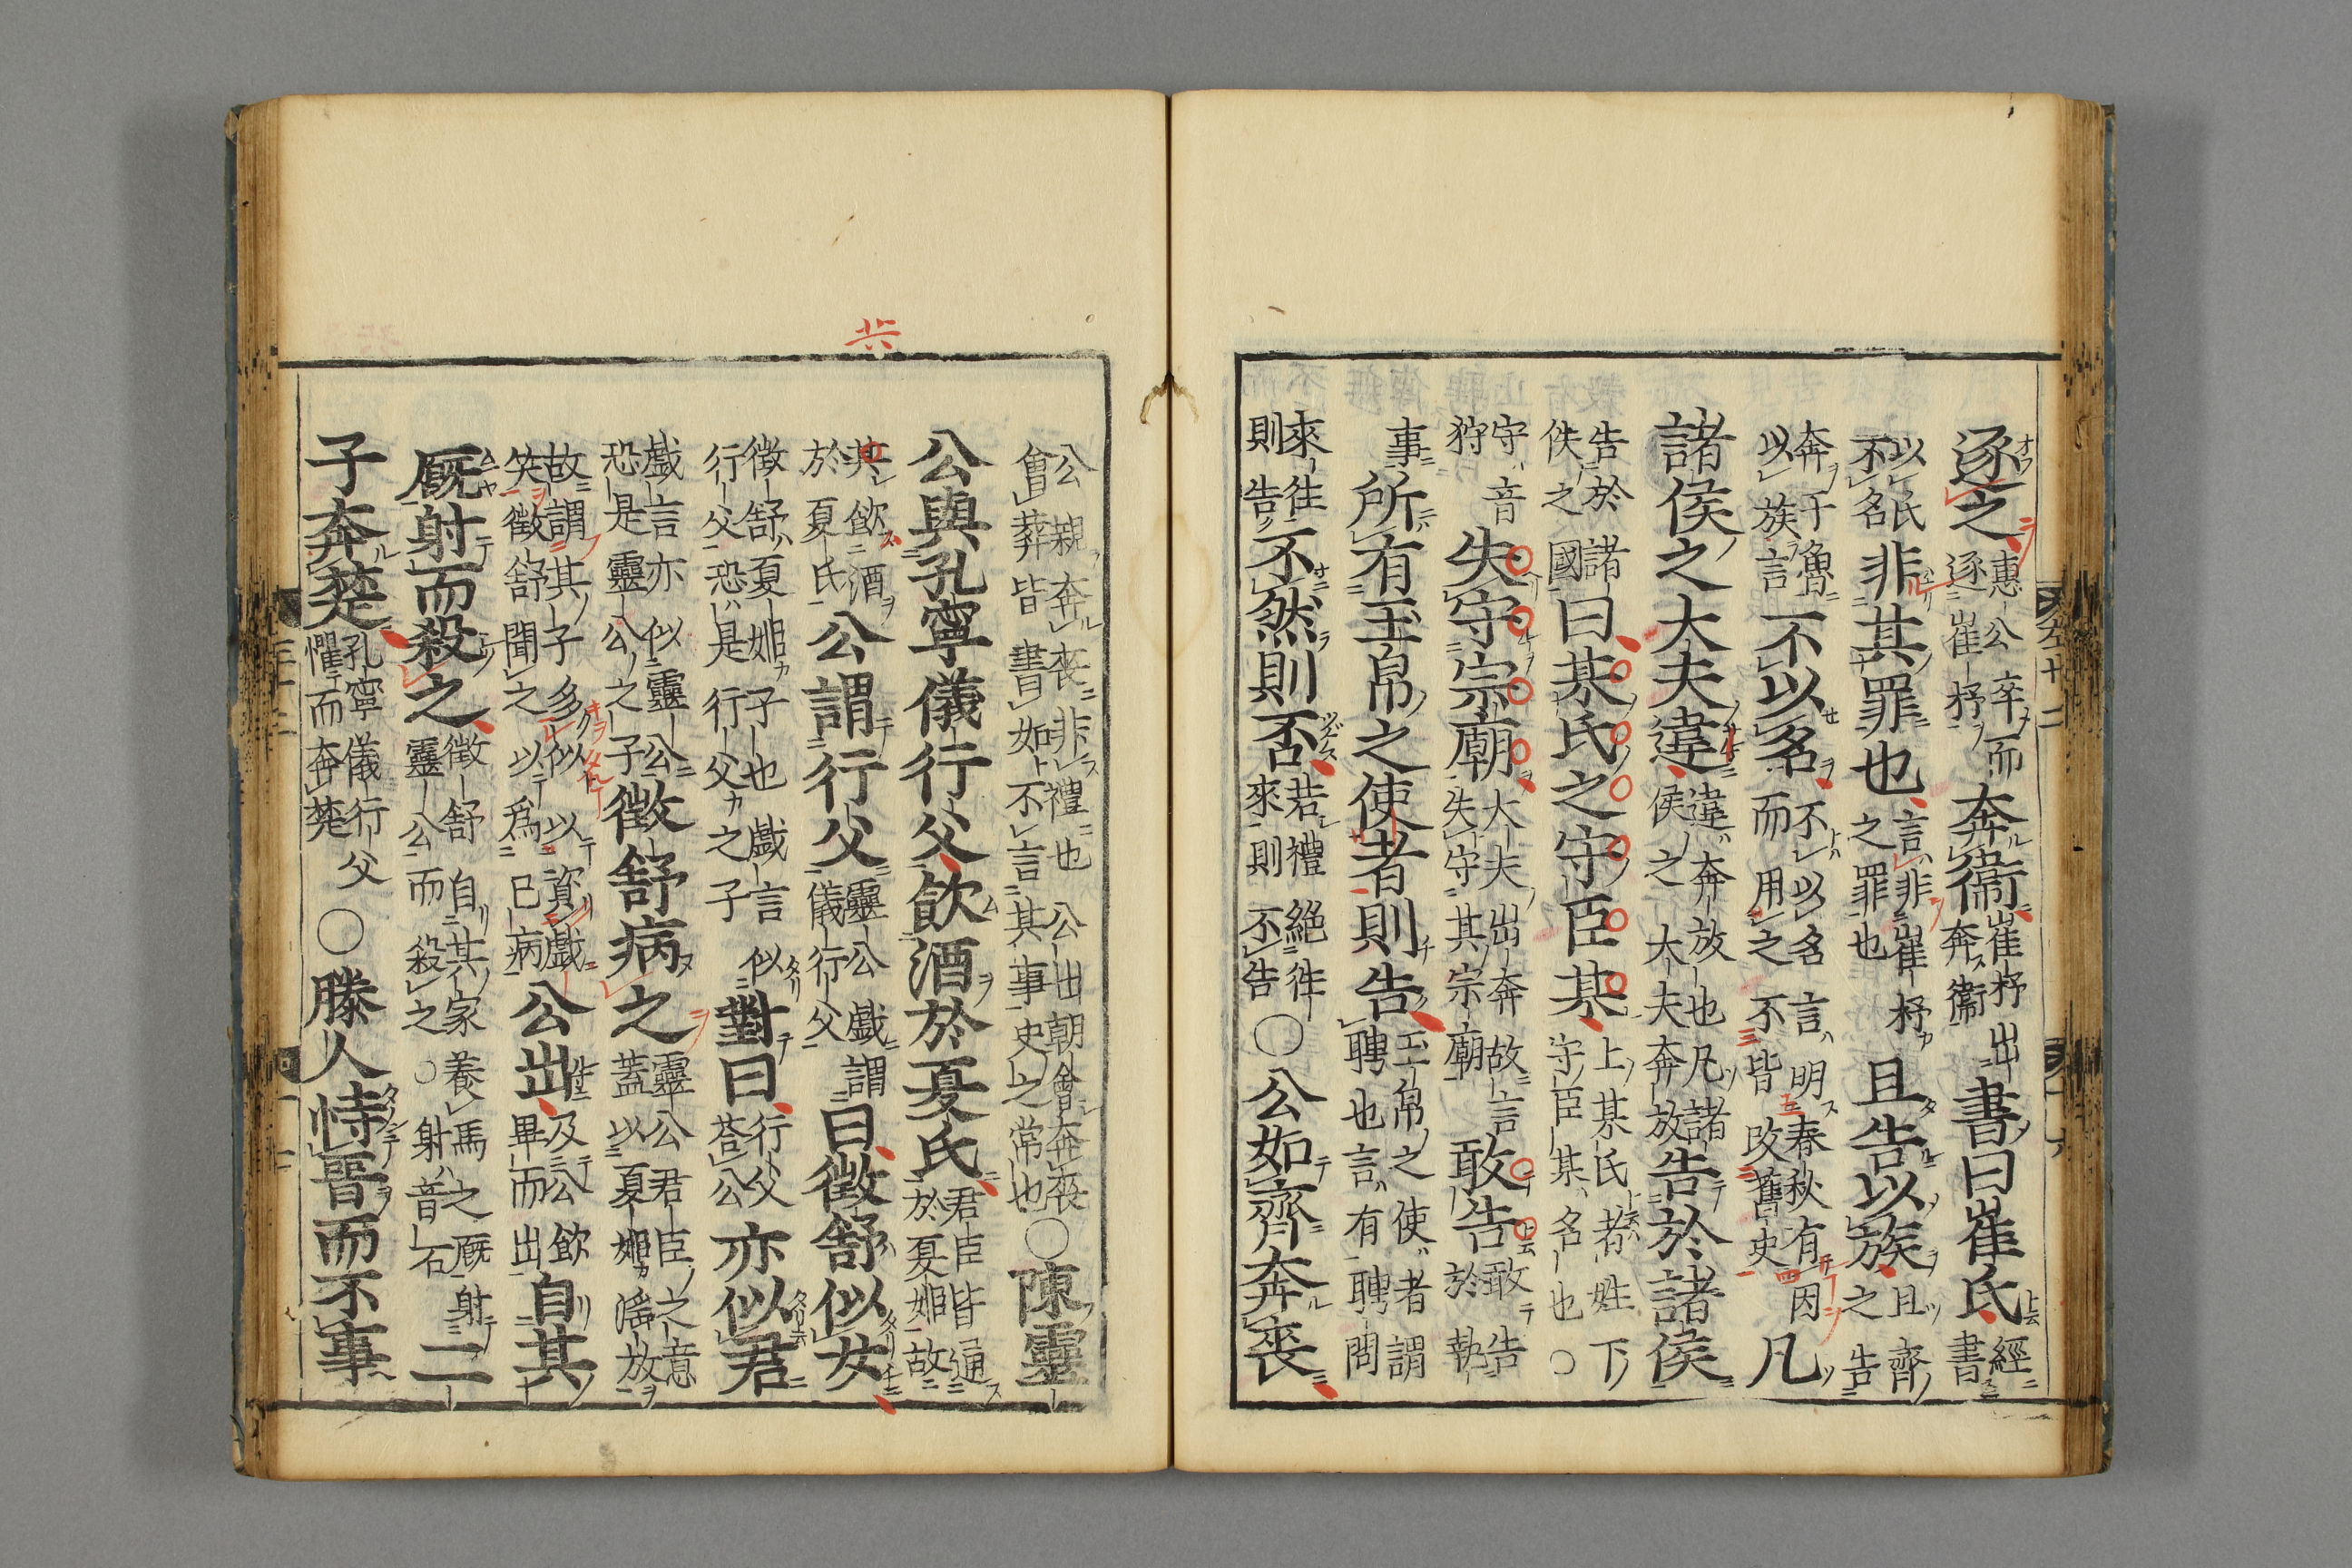 逐之惠公卒而逐崔杼奔衞崔杼出奔衞書曰崔氏經書
以氏不名非其罪也言非崔杼之罪也且告以族且齊之告
奔于魯以族言不以名不以名而用之言明春秋有因不皆改舊史凡
諸侯之大夫違違奔放也凡諸侯之大夫奔放告於諸侯
告於諸佚之國曰某氏之守臣某上某氏者姓下守臣某名也○
守音狩失守宗廟大夫出奔故言失守其宗廟敢告敢告於執
事所有玉帛之使者則告玉帛之使者謂聘也言有聘問
來往則告不然則否若禮絕往來則不告○公如齊奔喪
公親奔喪非禮也公出朝會奔喪會葬皆書如不言其事史之常也○陳靈
公與孔寧儀行父飲酒於夏氏君臣皆通於夏姬故
其飲酒於夏氏公謂行父靈公戲謂儀行父曰徵舒似女
徵舒夏姬子也戲言似行父恐是行父之子對曰行父荅公亦似君
戲言亦似靈公恐是靈公之子徵舒病之靈公君臣之意蓋以夏姬滛放
故謂其子多似以資戲笑徵舒聞之以爲已病公出及公飲畢而出自其
厩射而殺之徵舒自其家養馬之厩射靈公而殺之○射音石二
子奔楚孔寧儀行父懼而奔楚○滕人恃晋而不事